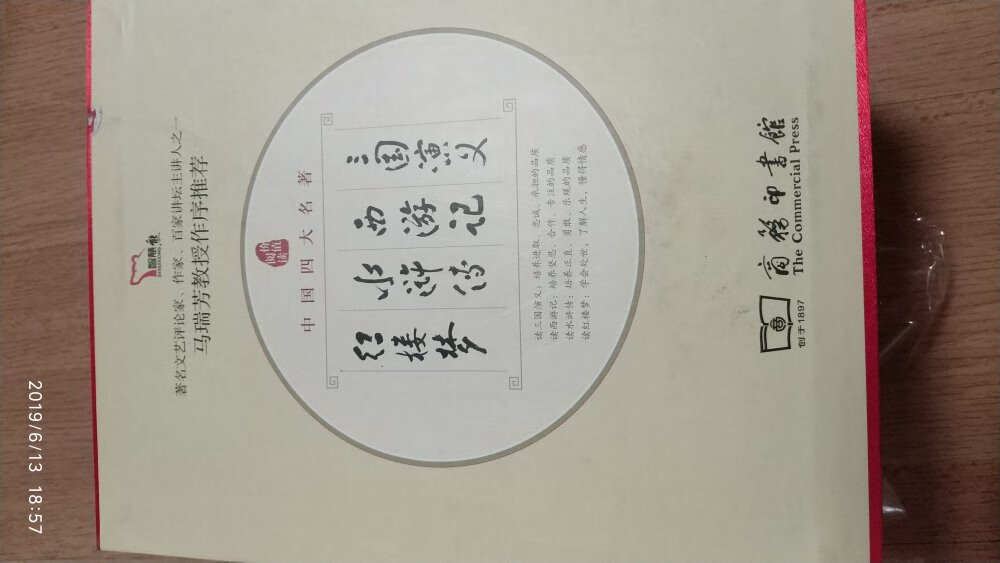 智慧熊
著名文艺评论家、作家、百家讲坛主讲人之一
马瑞芳教授作序推荐
价值阅读
中国四大名著
三国演义
西游记
水浒传
红楼梦
读三国演义：培养进取、忠诚、承担的品质
读西游记：培养坚忍、合作、专注的品质
读水浒传：培养正直、勇敢、乐观的品质
读红楼梦：学会处世，了解人生，懂得情感
商务印书馆
The Commercial Press
创于1897
2019/6/13 18:57